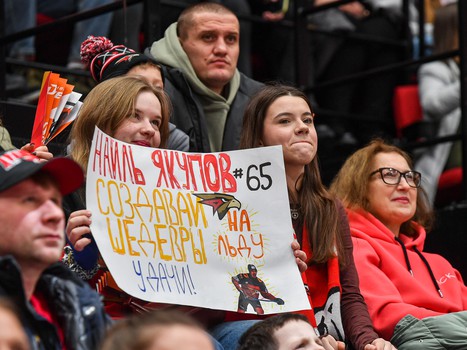 НАИЛЬ ЯКУПОВ #65
СОЗДАВАЙ
ШЕДЕВРЫ НА
ЛЬДУ
УДАЧИ!